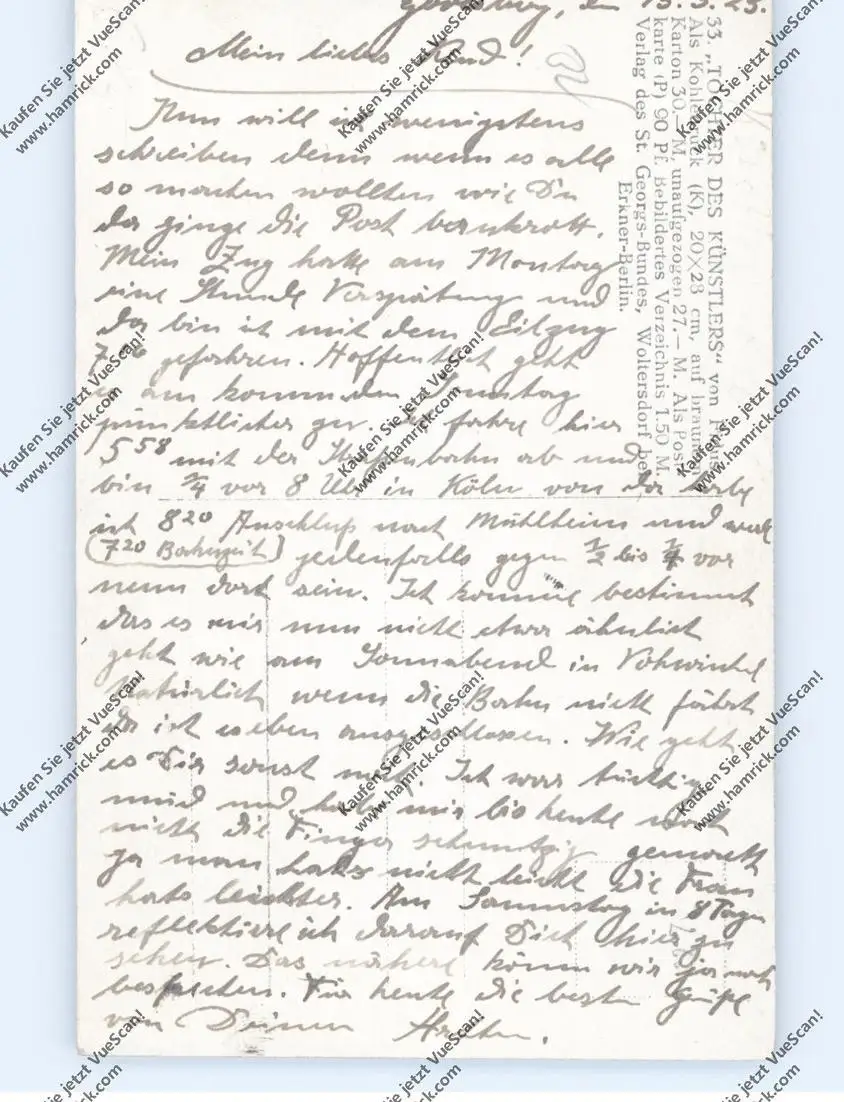 Godesberg, den 15.3.23.
Mein liebes Kind!
Nun will ich wenigstens
schreiben denn wenn es alle
so machen wollten wie Du
da ginge die Post bankrott.
Mein Zug hatte am Montag
eine Stunde Verspätung und
da bin ich mit dem Eilzug
gefahren. Hoffentlich geht
es am kommenden Sonntag
pünktlicher zu. Ich fahre hier
5 58 mit der Straßenbahn ab und
bin 3/4 vor 8 Uhr in Köln von da habe
ich 8 20 Anschluß nach Mühlheim und
(7 20 Bahnzeit) jedenfalls gegen 1/2 bis 1/4 vor
neun dort sein. Ich komme bestimmt
das es mir nun nicht etwa ähnlich
geht wie am Sonnabend in Vohwinkel
natürlich wenn die Bahn nicht fährt
da ist es eben ausgeschlossen. Wie geht
es Dir sonst noch. Ich war tüchtig
müd und habe mir bis heute noch
nicht die Finger schmutzig gemacht
ja man hats nicht leicht die Frau
hats leichter. Am Samstag in 8 Tagen
reflektiere ich darauf Dich hier zu
sehen. Das nähere können wir ja noch
besprechen. Für heute die besten Grüße
von Deinem
33. „TOCHTER DES KÜNSTLERS“ von
Als Kohledruck (K), 20×28 cm, auf braunem
Karton 30.— M, unaufgezogen 27.— M. Als Post-
karte (P) 90 Pf. Bebildertes Verzeichnis 1.50 M.
Verlag des St. Georgs-Bundes, Woltersdorf bei
Erkner-Berlin.
Kaufen Sie jetzt VueScan!
www.hamrick.com
Kaufen Sie jetzt VueScan!
www.hamrick.com
Kaufen Sie jetzt VueScan!
www.hamrick.com
Kaufen Sie jetzt VueScan!
www.hamrick.com
Kaufen Sie jetzt VueScan!
www.hamrick.com
Kaufen Sie jetzt VueScan!
www.hamrick.com
Kaufen Sie jetzt VueScan!
www.hamrick.com
Kaufen Sie jetzt VueScan!
www.hamrick.com
Kaufen Sie jetzt VueScan!
www.hamrick.com